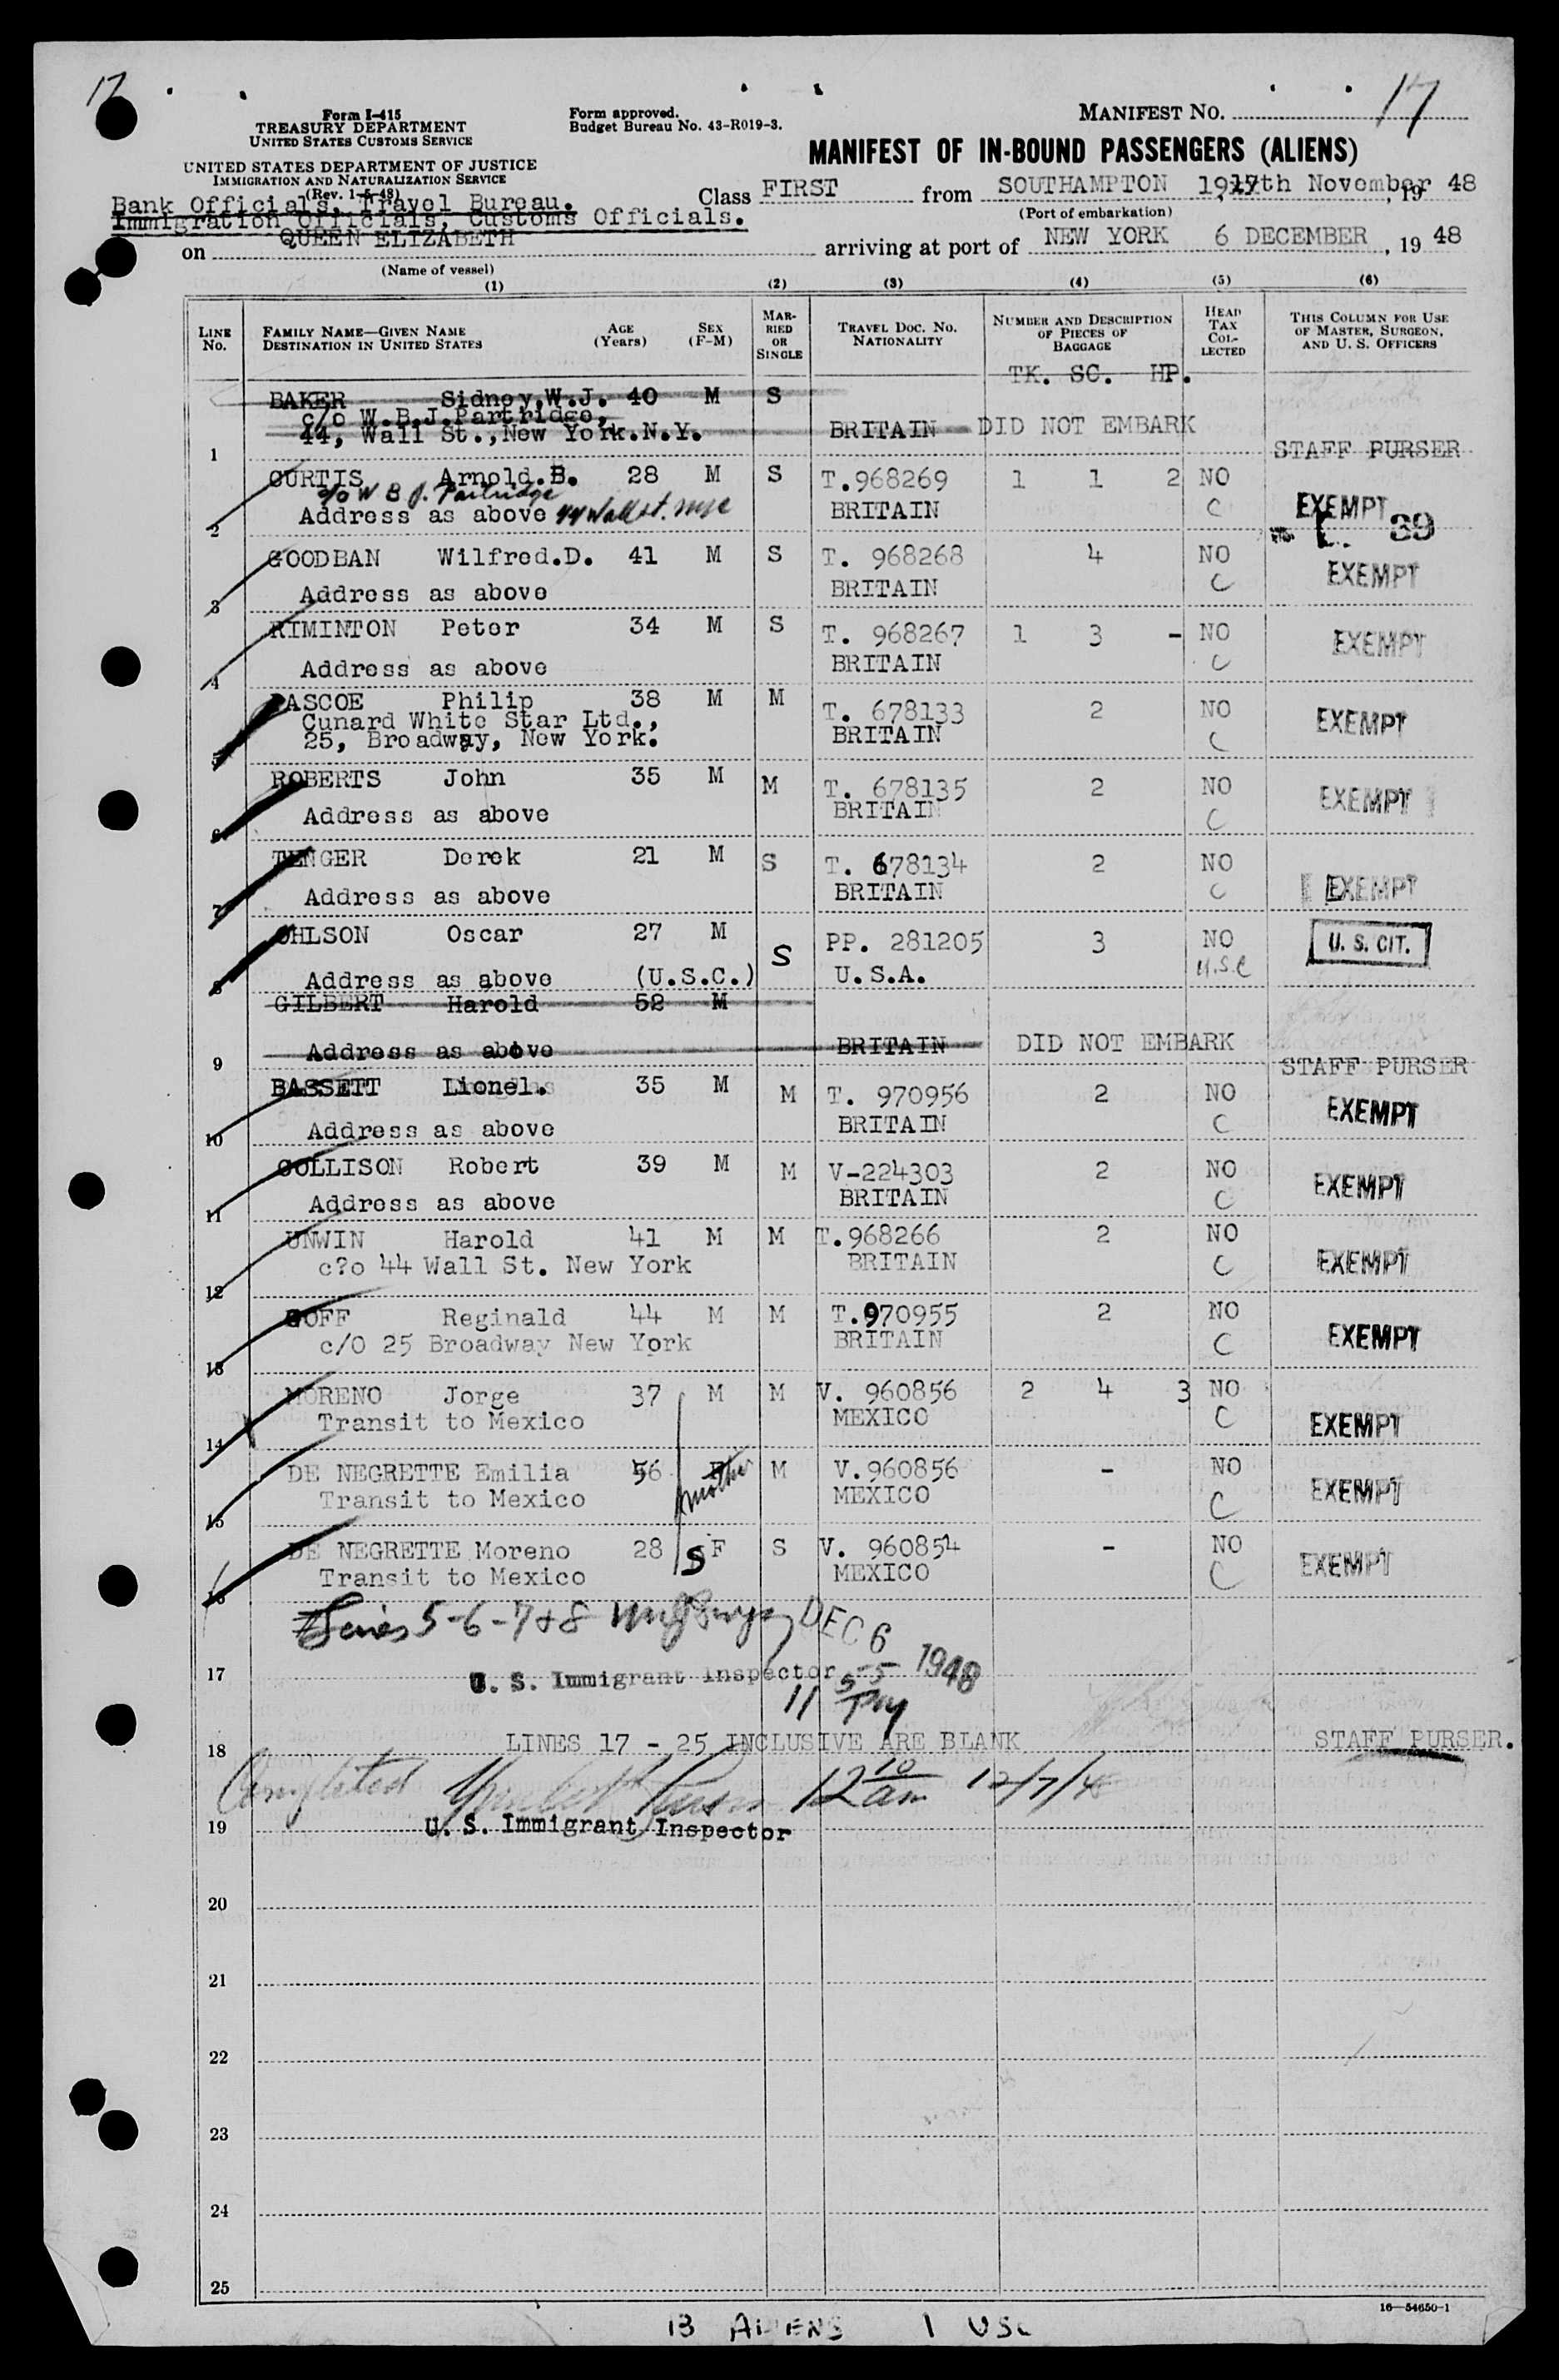 17
17
Form I-415
TREASURY DEPARTMENT
UNITED STATES CUSTOMS SERVICE
Form approved.
Budget Bureau No. 43-R019-3.
MANIFEST NO.
UNITED STATES DEPARTMENT OF JUSTICE
IMMIGRATION AND NATURALIZATION SERVICE
(Rev. 1-5-48)
MANIFEST OF IN-BOUND PASSENGERS (ALIENS)
Bank Officials, Travel Bureau.
Immigration Officials, Customs Officials.
Class FIRST from SOUTHAMPTON November, 19 48
(Port of embarkation)
on QUEEN ELIZABETH arriving at port of NEW YORK 6 DECEMBER, 19 48
(Name of vessel)
(1) (2) (3) (4) (5) (6)
LINE NO. FAMILY NAME—GIVEN NAME DESTINATION IN UNITED STATES AGE (Years) SEX (F-M) MARRIED OR SINGLE TRAVEL DOC. NO. NATIONALITY NUMBER AND DESCRIPTION OF PIECES OF BAGGAGE HEAD TAX COLLECTED THIS COLUMN FOR USE OF MASTER, SURGEON, AND U. S. OFFICERS
TK. SC. HP.
BAKER Sidney.W.J. 40 M S
c/o W.B.J.Partridge,
44, Wall St.,New York.N.Y. BRITAIN DID NOT EMBARK
1 STAFF PURSER
CURTIS Arnold.B. 28 M S T.968269 1 1 2 NO
c/o W B J. Partridge
2 Address as above 44 Wall St. NYC BRITAIN C EXEMPT
39
GOODBAN Wilfred.D. 41 M S T. 968268 4 NO EXEMPT
3 Address as above BRITAIN C
RIMINTON Peter 34 M S T. 968267 1 3 - NO EXEMPT
4 Address as above BRITAIN C
PASCOE Philip 38 M M T. 678133 2 NO EXEMPT
Cunard White Star Ltd.,
5 25, Broadway, New York. BRITAIN C
ROBERTS John 35 M M T. 678135 2 NO EXEMPT
6 Address as above BRITAIN C
TENGER Derek 21 M S T. 678134 2 NO
7 Address as above BRITAIN C EXEMPT
OHLSON Oscar 27 M S PP. 281205 3 NO U. S. CIT.
8 Address as above (U.S.C.) U.S.A. U.S.C
GILBERT Harold 52 M
9 Address as above BRITAIN DID NOT EMBARK
STAFF PURSER
BASSETT Lionel. 35 M M T. 970956 2 NO EXEMPT
10 Address as above BRITAIN C
COLLISON Robert 39 M M V-224303 2 NO EXEMPT
11 Address as above BRITAIN C
UNWIN Harold 41 M M T.968266 2 NO
12 c?o 44 Wall St. New York BRITAIN C EXEMPT
GOFF Reginald 44 M M T.970955 2 NO
13 c/O 25 Broadway New York BRITAIN C EXEMPT
MORENO Jorge 37 M M V. 960856 2 4 3 NO
14 Transit to Mexico MEXICO C EXEMPT
DE NEGRETTE Emilia 56 F M V.960856 - NO
mother
15 Transit to Mexico MEXICO C EXEMPT
DE NEGRETTE Moreno 28 S F S V. 960854 - NO
16 Transit to Mexico MEXICO C EXEMPT
5-6-7+8 DEC 6 1948
17 U. S. Immigrant Inspector
11 55 PM
18 LINES 17 - 25 INCLUSIVE ARE BLANK STAFF PURSER.
Completed 12 10 am 12/7/48
19 U. S. Immigrant Inspector
20
21
22
23
24
25
16—54650-1
13 ALIENS 1 USC